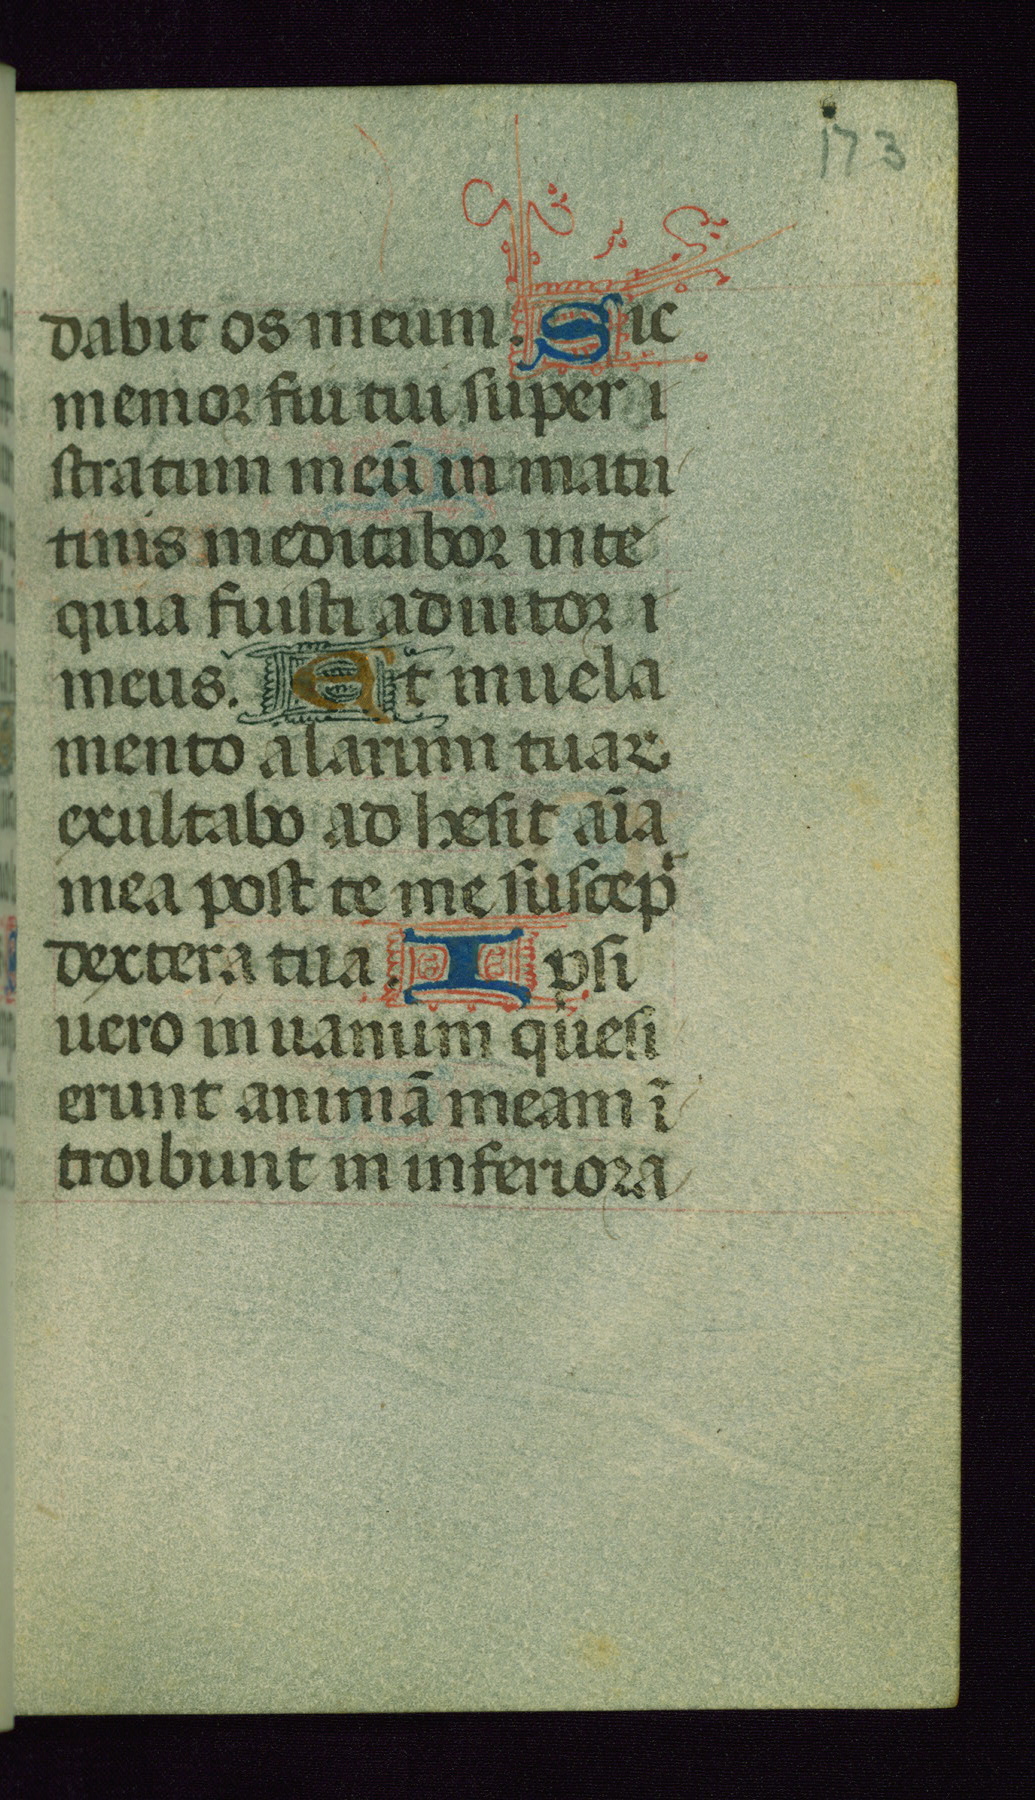 173
dabit os meum. Sic
memor fui tui super i
stratum meū in matu
tinis meditabor in te
quia fuisti adiutor i
meus. Et in uela
mento alarum tuaꝝ
exultabo ad hesit aīa
mea post te me suscep̄
dextera tua. Ipsi
uero in uanum quesi
erunt animā meam ī
troibunt in inferiora